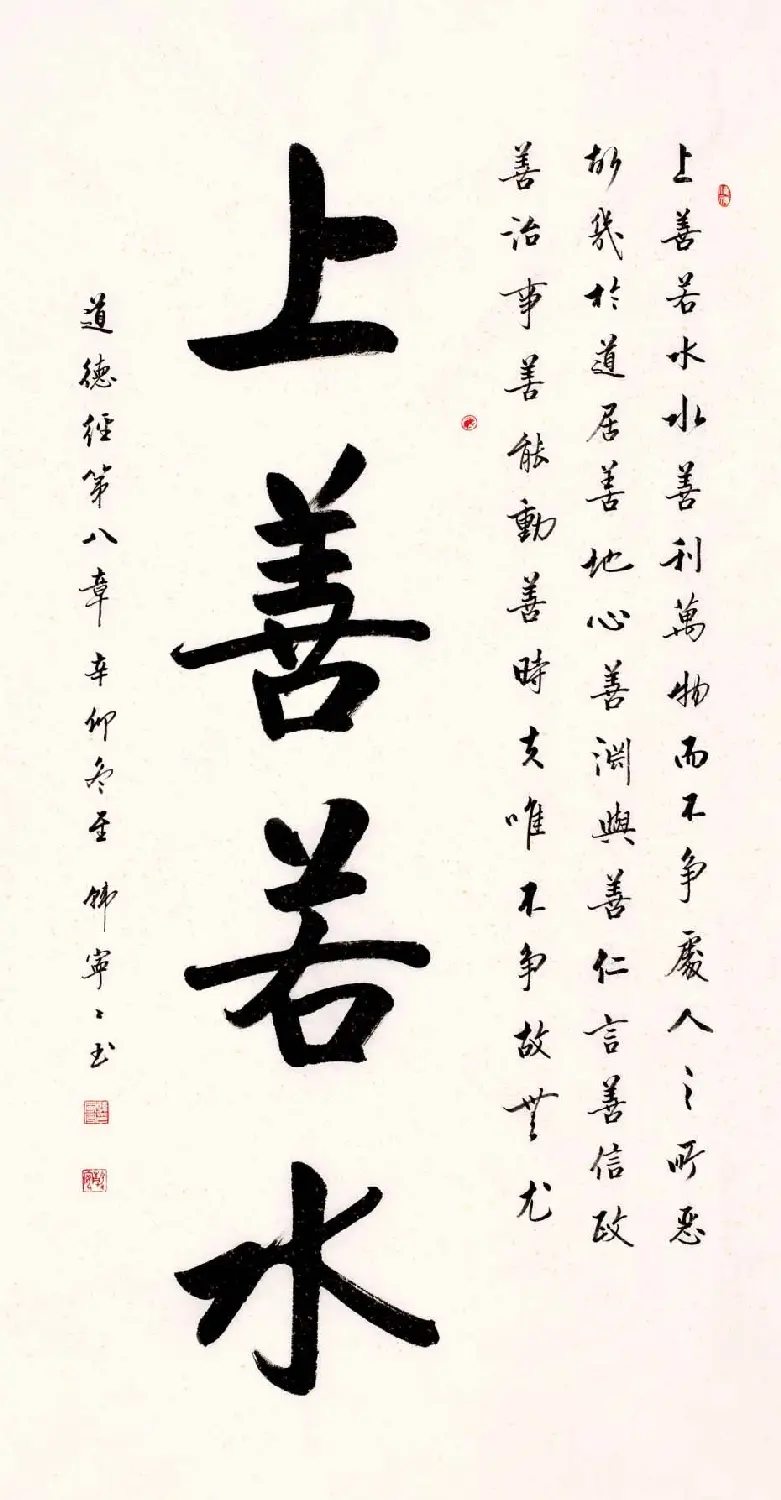 上善若水水善利萬物而不争處人之所惡
故幾於道居善地心善淵與善仁言善信政
善治事善能動善時夫唯不争故無尤
上善若水
道德經第八章 辛卯冬至 韓寧〻书